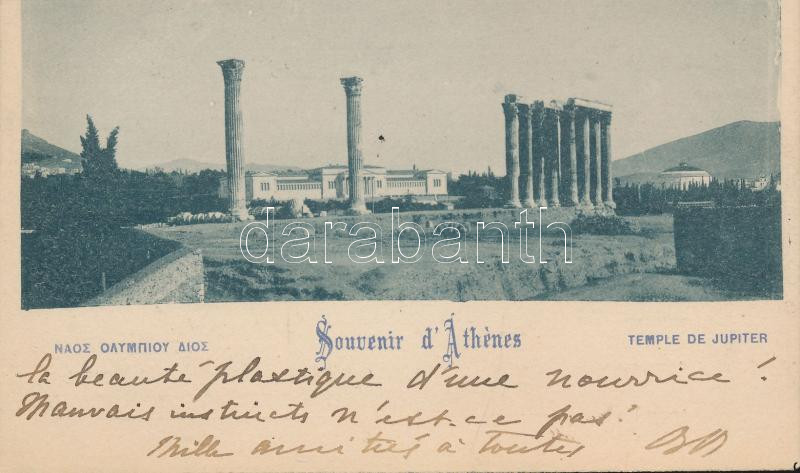 darabanth
ΝΑΟΣ ΟΛΥΜΠΙΟΥ ΔΙΟΣ
Souvenir d'Athènes
TEMPLE DE JUPITER
la beauté plastique d'une nourrice!
Mauvais instincts n'est-ce pas!
Mille amitiés à toutes